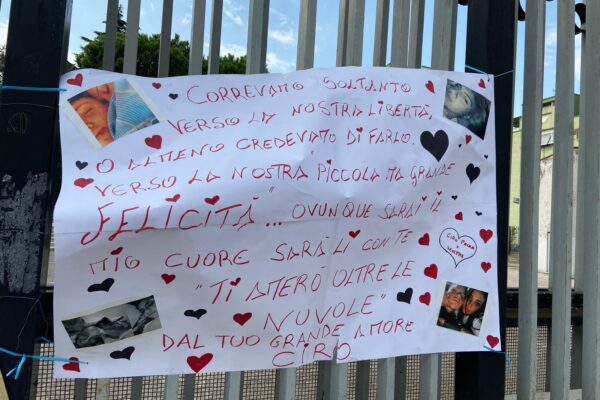 CORREVAMO SOLTANTO
VERSO LA NOSTRA LIBERTÀ,
O ALMENO CREDEVAMO DI FARLO.
VERSO LA NOSTRA "PICCOLA MA GRANDE
FELICITÀ"... OVUNQUE SARAI IL
MIO CUORE SARÀ LÌ CON TE
"TI AMERÒ OLTRE LE
NUVOLE"
DAL TUO GRANDE AMORE
CIRO
CIRO